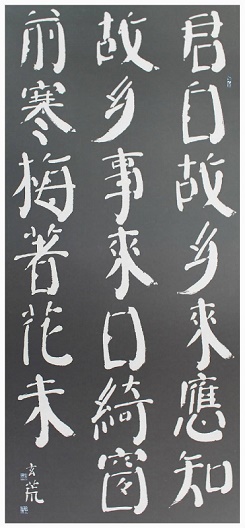 君自故乡來應知
故乡事來日綺窗
前寒梅著花未
玄荒